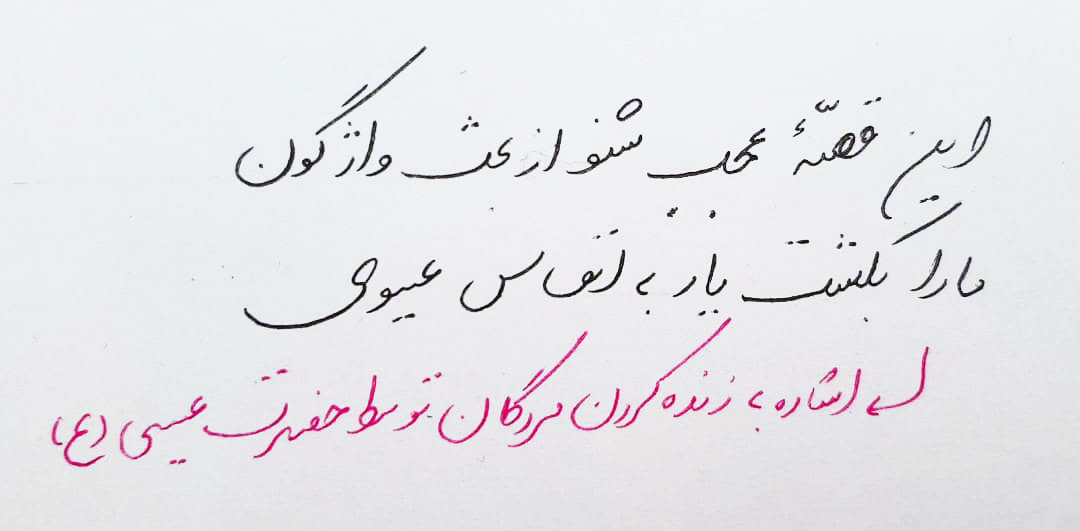 این قصّهٔ عجب شنو از بخت واژگون
ما را بکشت یار به انفاس عیسوی
اشاره به زنده کردن مردگان توسط حضرت عیسی (ع)